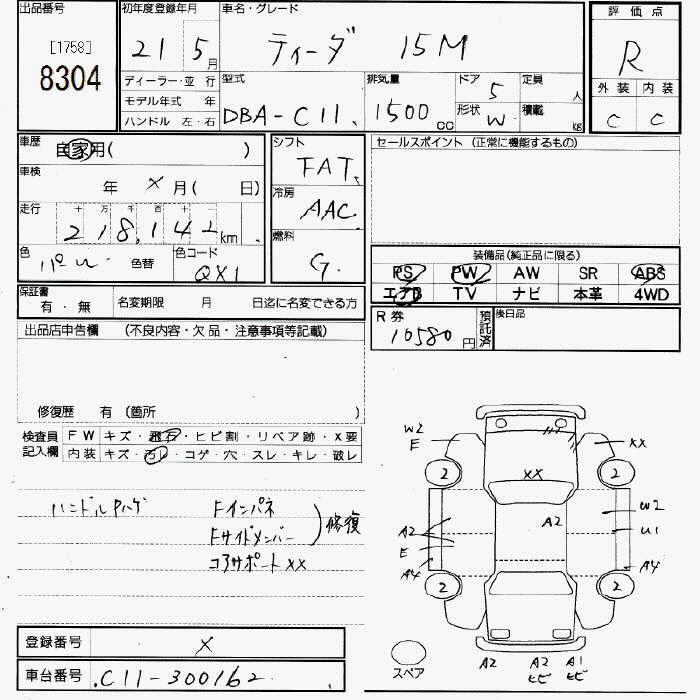 出品番号
[1758]
8304
初年度登録年月
21 5月
車名・グレード
ティーダ 15M
評価点
R
ディーラー・並行
モデル年式 年
ハンドル 左・右
型式
DBA-C11
排気量
1500cc
ドア
5
形状
W
定員
人
積載
kg
外装 内装
C C
車歴
自家用( )
車検
年 × 月( 日)
走行
十 万 千 百 十
218,142km
色
パール
色替
色コード
QX1
シフト
FAT
冷房
AAC
燃料
G
セールスポイント (正常に機能するもの)
装備品(純正品に限る)
PS PW AW SR ABS
エアB TV ナビ 本革 4WD
保証書
有・無
名変期限 月 日迄に名変できる方
R券
10580円
預託済
後日品
出品店申告欄 (不良内容・欠品・注意事項等記載)
修復歴 有 (箇所 )
検査員記入欄
FW キズ・飛石・ヒビ割・リペア跡・X要
内装 キズ・汚レ・コゲ・穴・スレ・キレ・破レ
ハンドルPハゲ
Fインパネ
Fサイドメンバー
修復
コアサポートXX
W2
E
XX
2 2
XX
A2
W2
U1
A2
E
A4
A4
2 2
スペア
A2
A2
ヒビ
A1
ヒビ
登録番号
×
車台番号
C11-300162